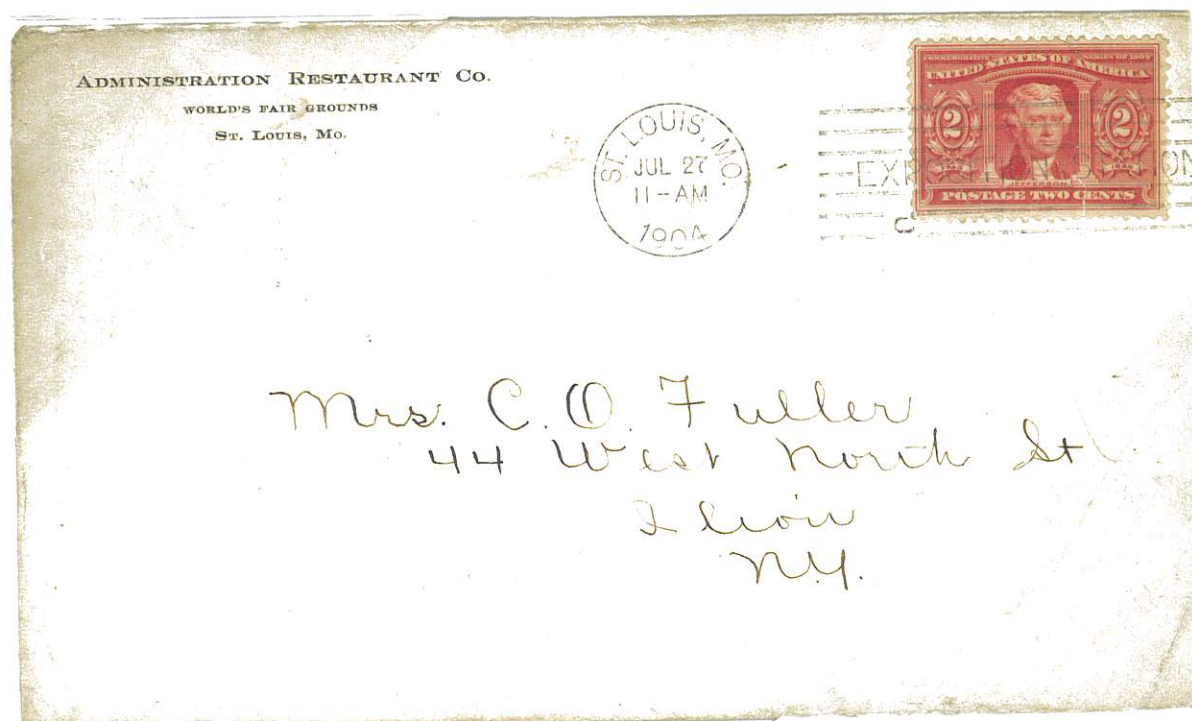 ADMINISTRATION RESTAURANT CO.
WORLD'S FAIR GROUNDS
ST. LOUIS, MO.
ST. LOUIS, MO.
JUL 27
11-AM
1904
COMMEMORATIVE SERIES OF 1904
UNITED STATES OF AMERICA
2 2
JEFFERSON
POSTAGE TWO CENTS
Mrs. C. O. Fuller
44 West North St
Ilion
N.Y.